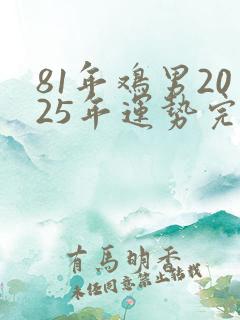 81年鸡男20
25年運势完
有馬明香
未经同意禁止转载